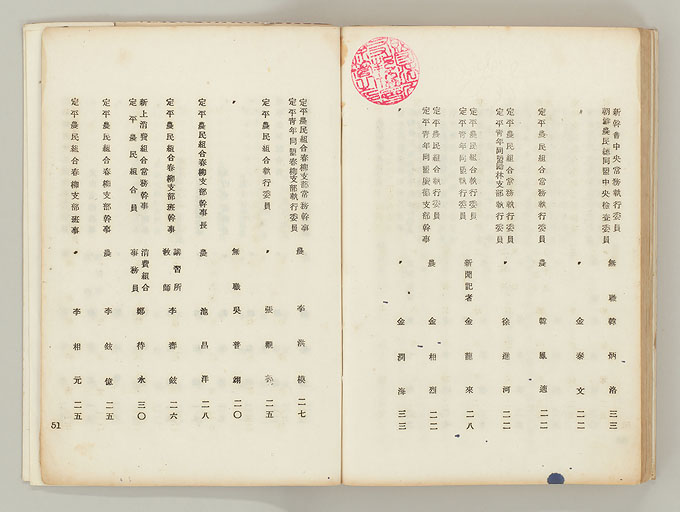 新幹會中央常務執行委員
朝鮮農民總同盟中央檢査委員 無職 韓炳洛 三三
〃 金泰文 二二
定平農民組合常務執行委員 農 韓鳳適 二二
定平農民組合常務執行委員
定平靑年同盟 林支部執行委員 〃 徐進河 二二
定平農民組合執行委員
定平靑年同盟執行委員 新聞記者 金龍來 二八
定平農民組合執行委員
定平靑年同盟 支部幹事 農 金相烈 二二
〃 金潤海 三三
定平農民組合春柳支部常務幹事
定平靑年同盟春柳支部執行委員 農 李洪模 二七
定平農民組合執行委員 〃 張觀 二五
〃 無職 吳普錫 二〇
定平農民組合春柳支部幹事長 農 池昌洋 二八
定平農民組合春柳支部班幹事 講習所敎師 李壽斂 二六
新上消費組合常務幹事
定平農民組合員 消費組合事務員 鄭待永 三〇
定平農民組合春柳支部幹事 農 李斂億 二五
定平農民組合春柳支部班事 〃 李相元 二五
51